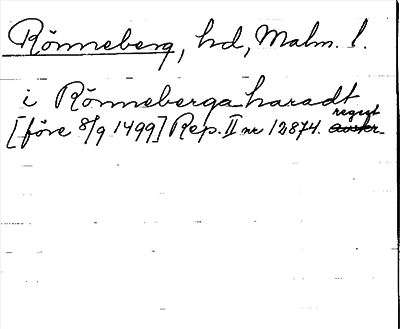 Rönneberg, hd, Malm. l.
i Rönneberga haradt
[före 8/9 1499] Rep. II nr 12874. regest